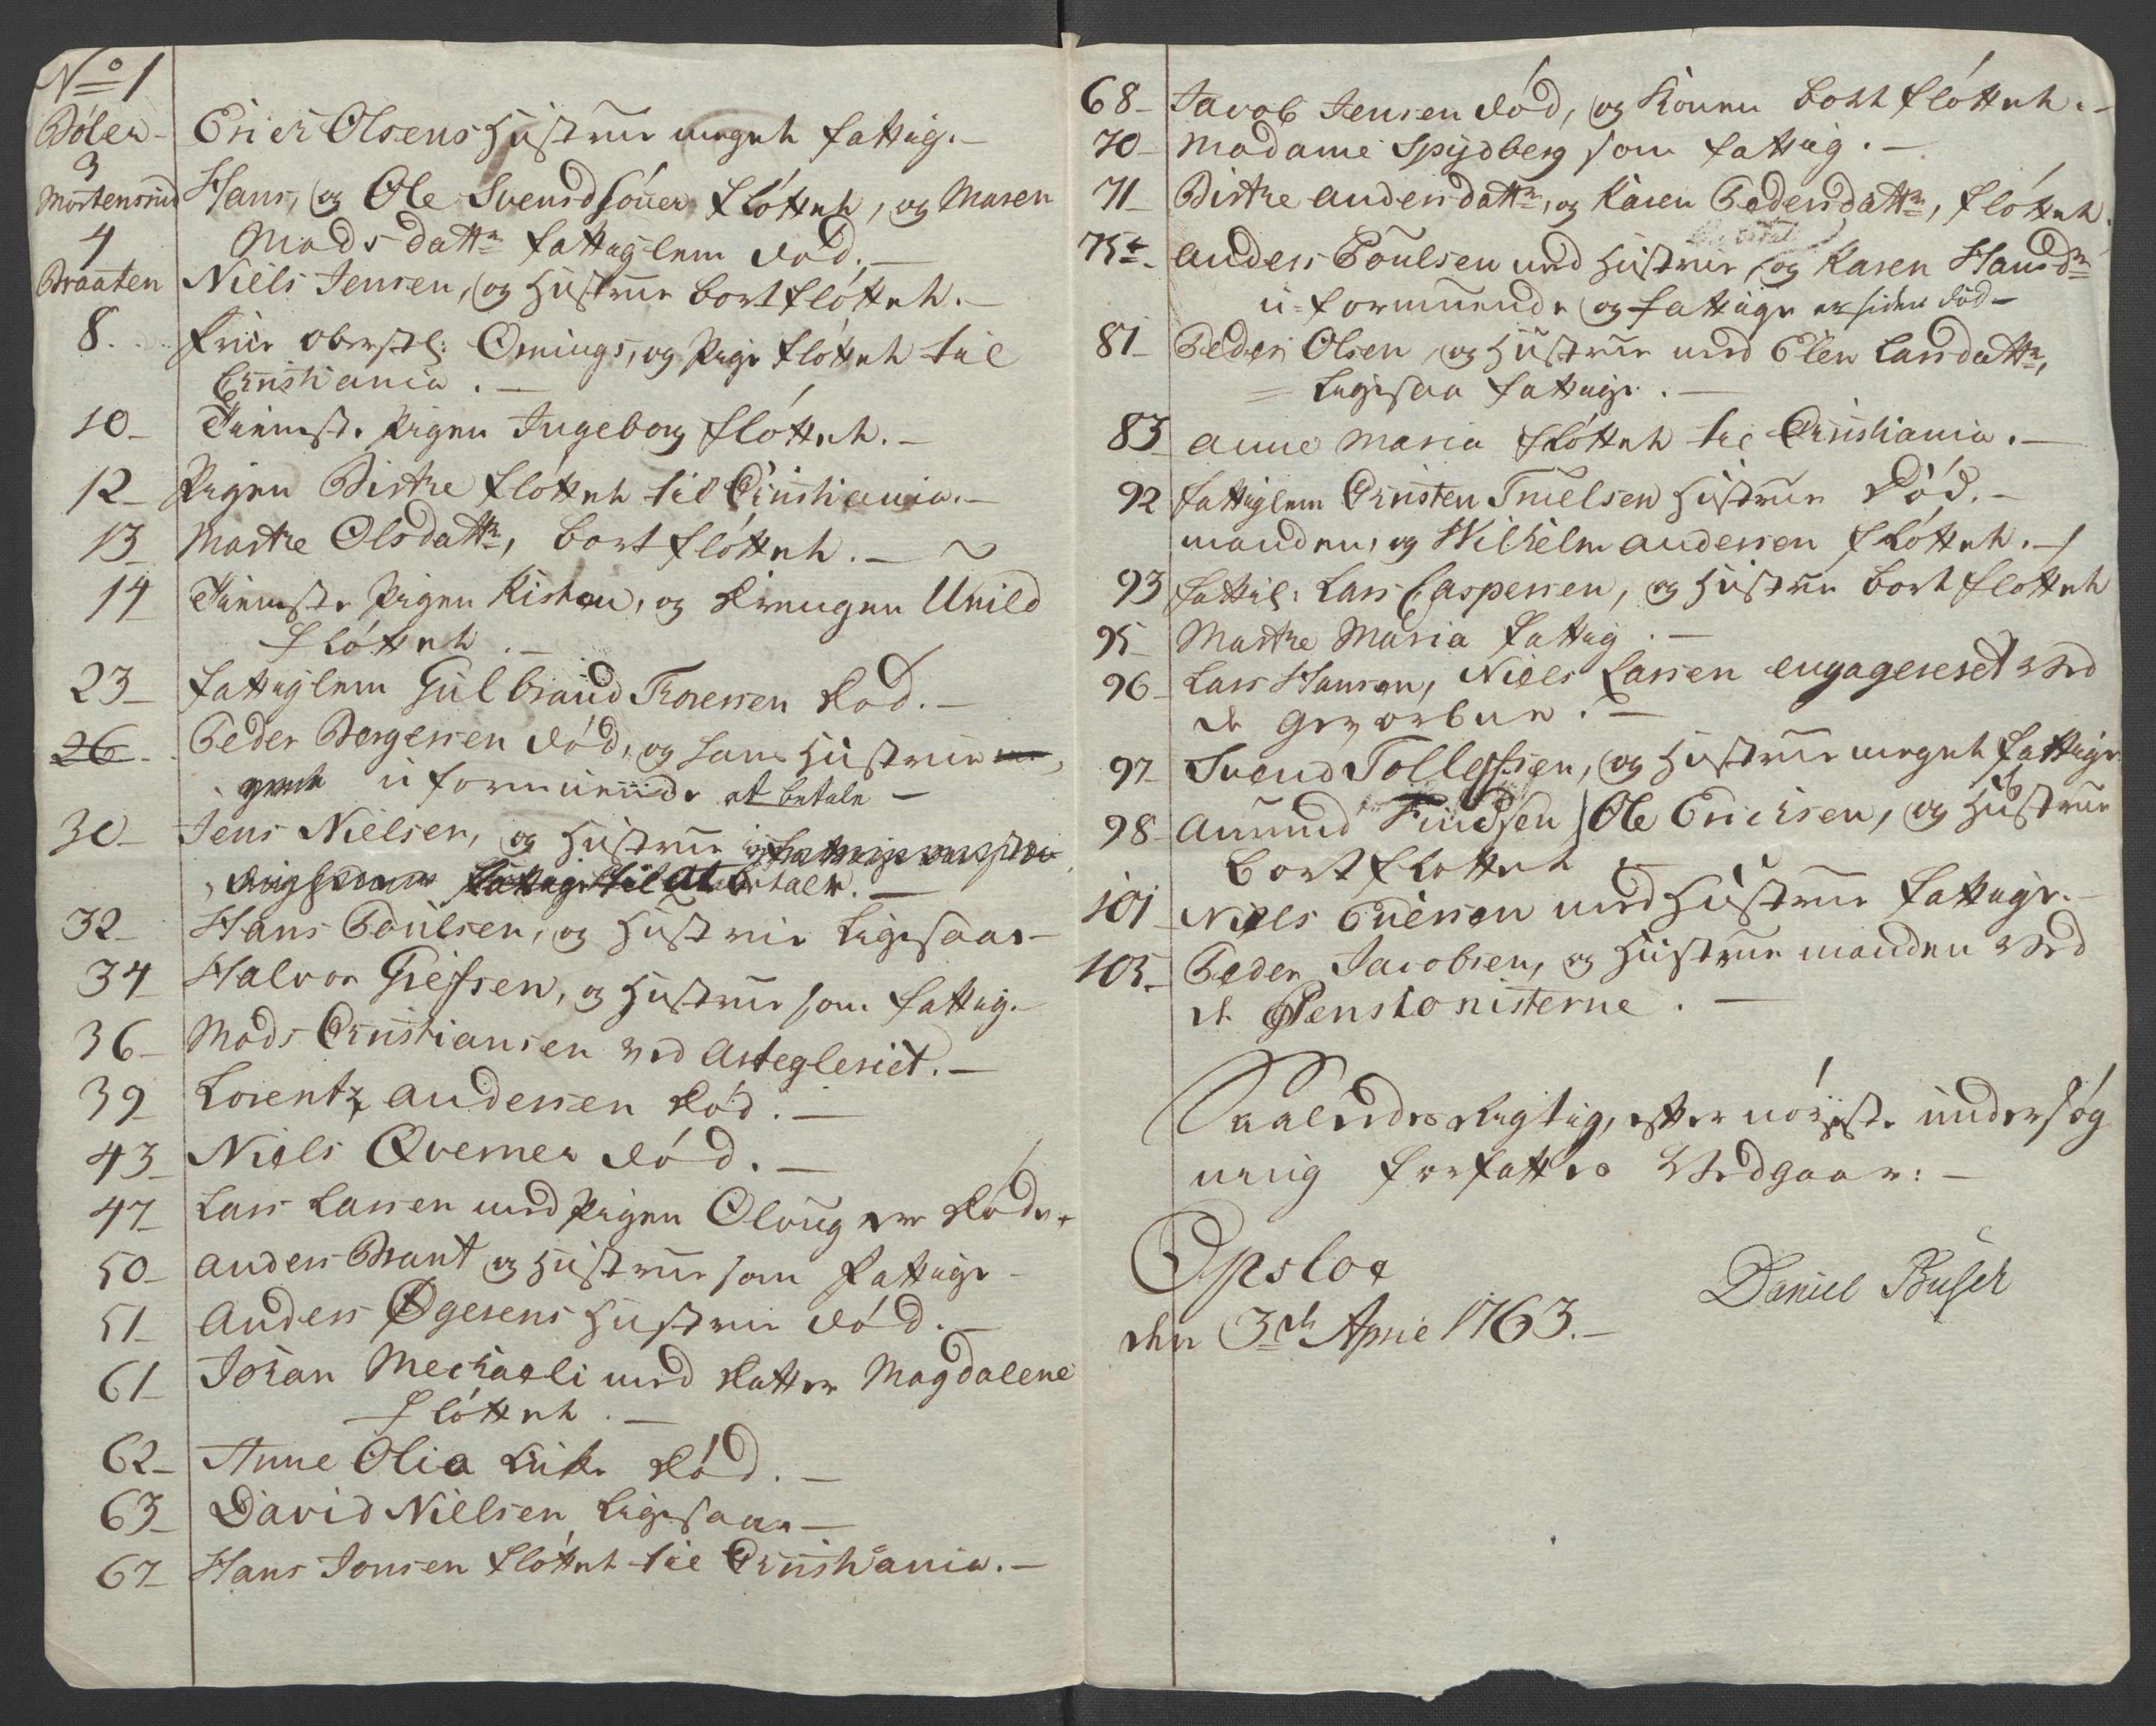 No 1
Bøler - Erich Olsens Hustrue meget fattig. -
3
Mortensrud Hans, og Ole Svends Sønner fløttet, og Maren
Mads datter fattiglem død. -
4
Braaten Niels Jensen, og Hustrue bortfløttet. -
8. Frue Oberstl: Omings, og Pige fløttet til
Christiania. -
10 - Tienste Pigen Ingeborg fløttet. -
12 - Pigen Birthe fløttet til Christiania. -
13 - Marthe Olsdatter, bort fløttet. -
14 - Tienste Pigen Kisten, og Drengen Unild
fløttet. -
23 - fattiglem Gulbrand Thoresen død. -
26 - Peder Borgersen død, og hans Hustrue
uformuende at betale -
30 - Jens Nielsen, og Hustrue
fattige til at betale. -
32 - Hans Poulsen, og Hustrue Ligesaa -
34 - Halvor Giefsen, og Hustrue som fattig. -
36 - Mads Christiansen ved Artegleriet. -
39 - Lorentz Andersen død. -
43 - Niels Qverner død. -
47 - Lars Larsen med Pigen Oloug er døde.
50 - Anders Brant og Hustrue som fattige -
51 - Anders Øgesens Hustrue død. -
61 - Johan Mechaeli med datter Magdalene
fløttet. -
62 - Anne Olia død. -
63 - David Nielsen Ligesaa -
67 - Hans Jonsen fløttet til Christiania. -
68 - Jacob Jensen død, og Konen bort fløttet. -
70 - Madame Spydberg som fattig. -
71 - Birthe Andersdatter, og Karen Pedersdatter, fløttet.
75 - Anders Poulsen med Hustrue, og Karen Hansdr
u-formuende og fattige er siden død -
81 - Peder Olsen, og Hustrue med Elen Larsdatter,
Ligesaa fattige. -
83 - Anne Maria fløttet til Christiania. -
92 fattiglem Christen Truelsen Hustrue død. -
manden, og Wilhelm Andersen fløttet. -
93 fattil: Lars Caspersen, og Hustrue bort fløttet
95 - Marthe Maria fattig. -
96 - Lars Hansen, Niels Larsen engageret ved
de Gevorbne. -
97 - Svend Tollefsen, og Hustrue meget fattige
98 - Amund Findsen Ole Erichsen, og Hustrue
bortfløttet -
101 - Niels Ericsen med Hustrue fattige. -
105 - Peder Jacobsen, og Hustrue manden ved
de Pensionisterne. -
Saaledes Rigtig, efter nøyeste undersøg
ning forfattes Vedgaar: -
Opsloe
den 3de Apriil 1763. -
Daniel Busch